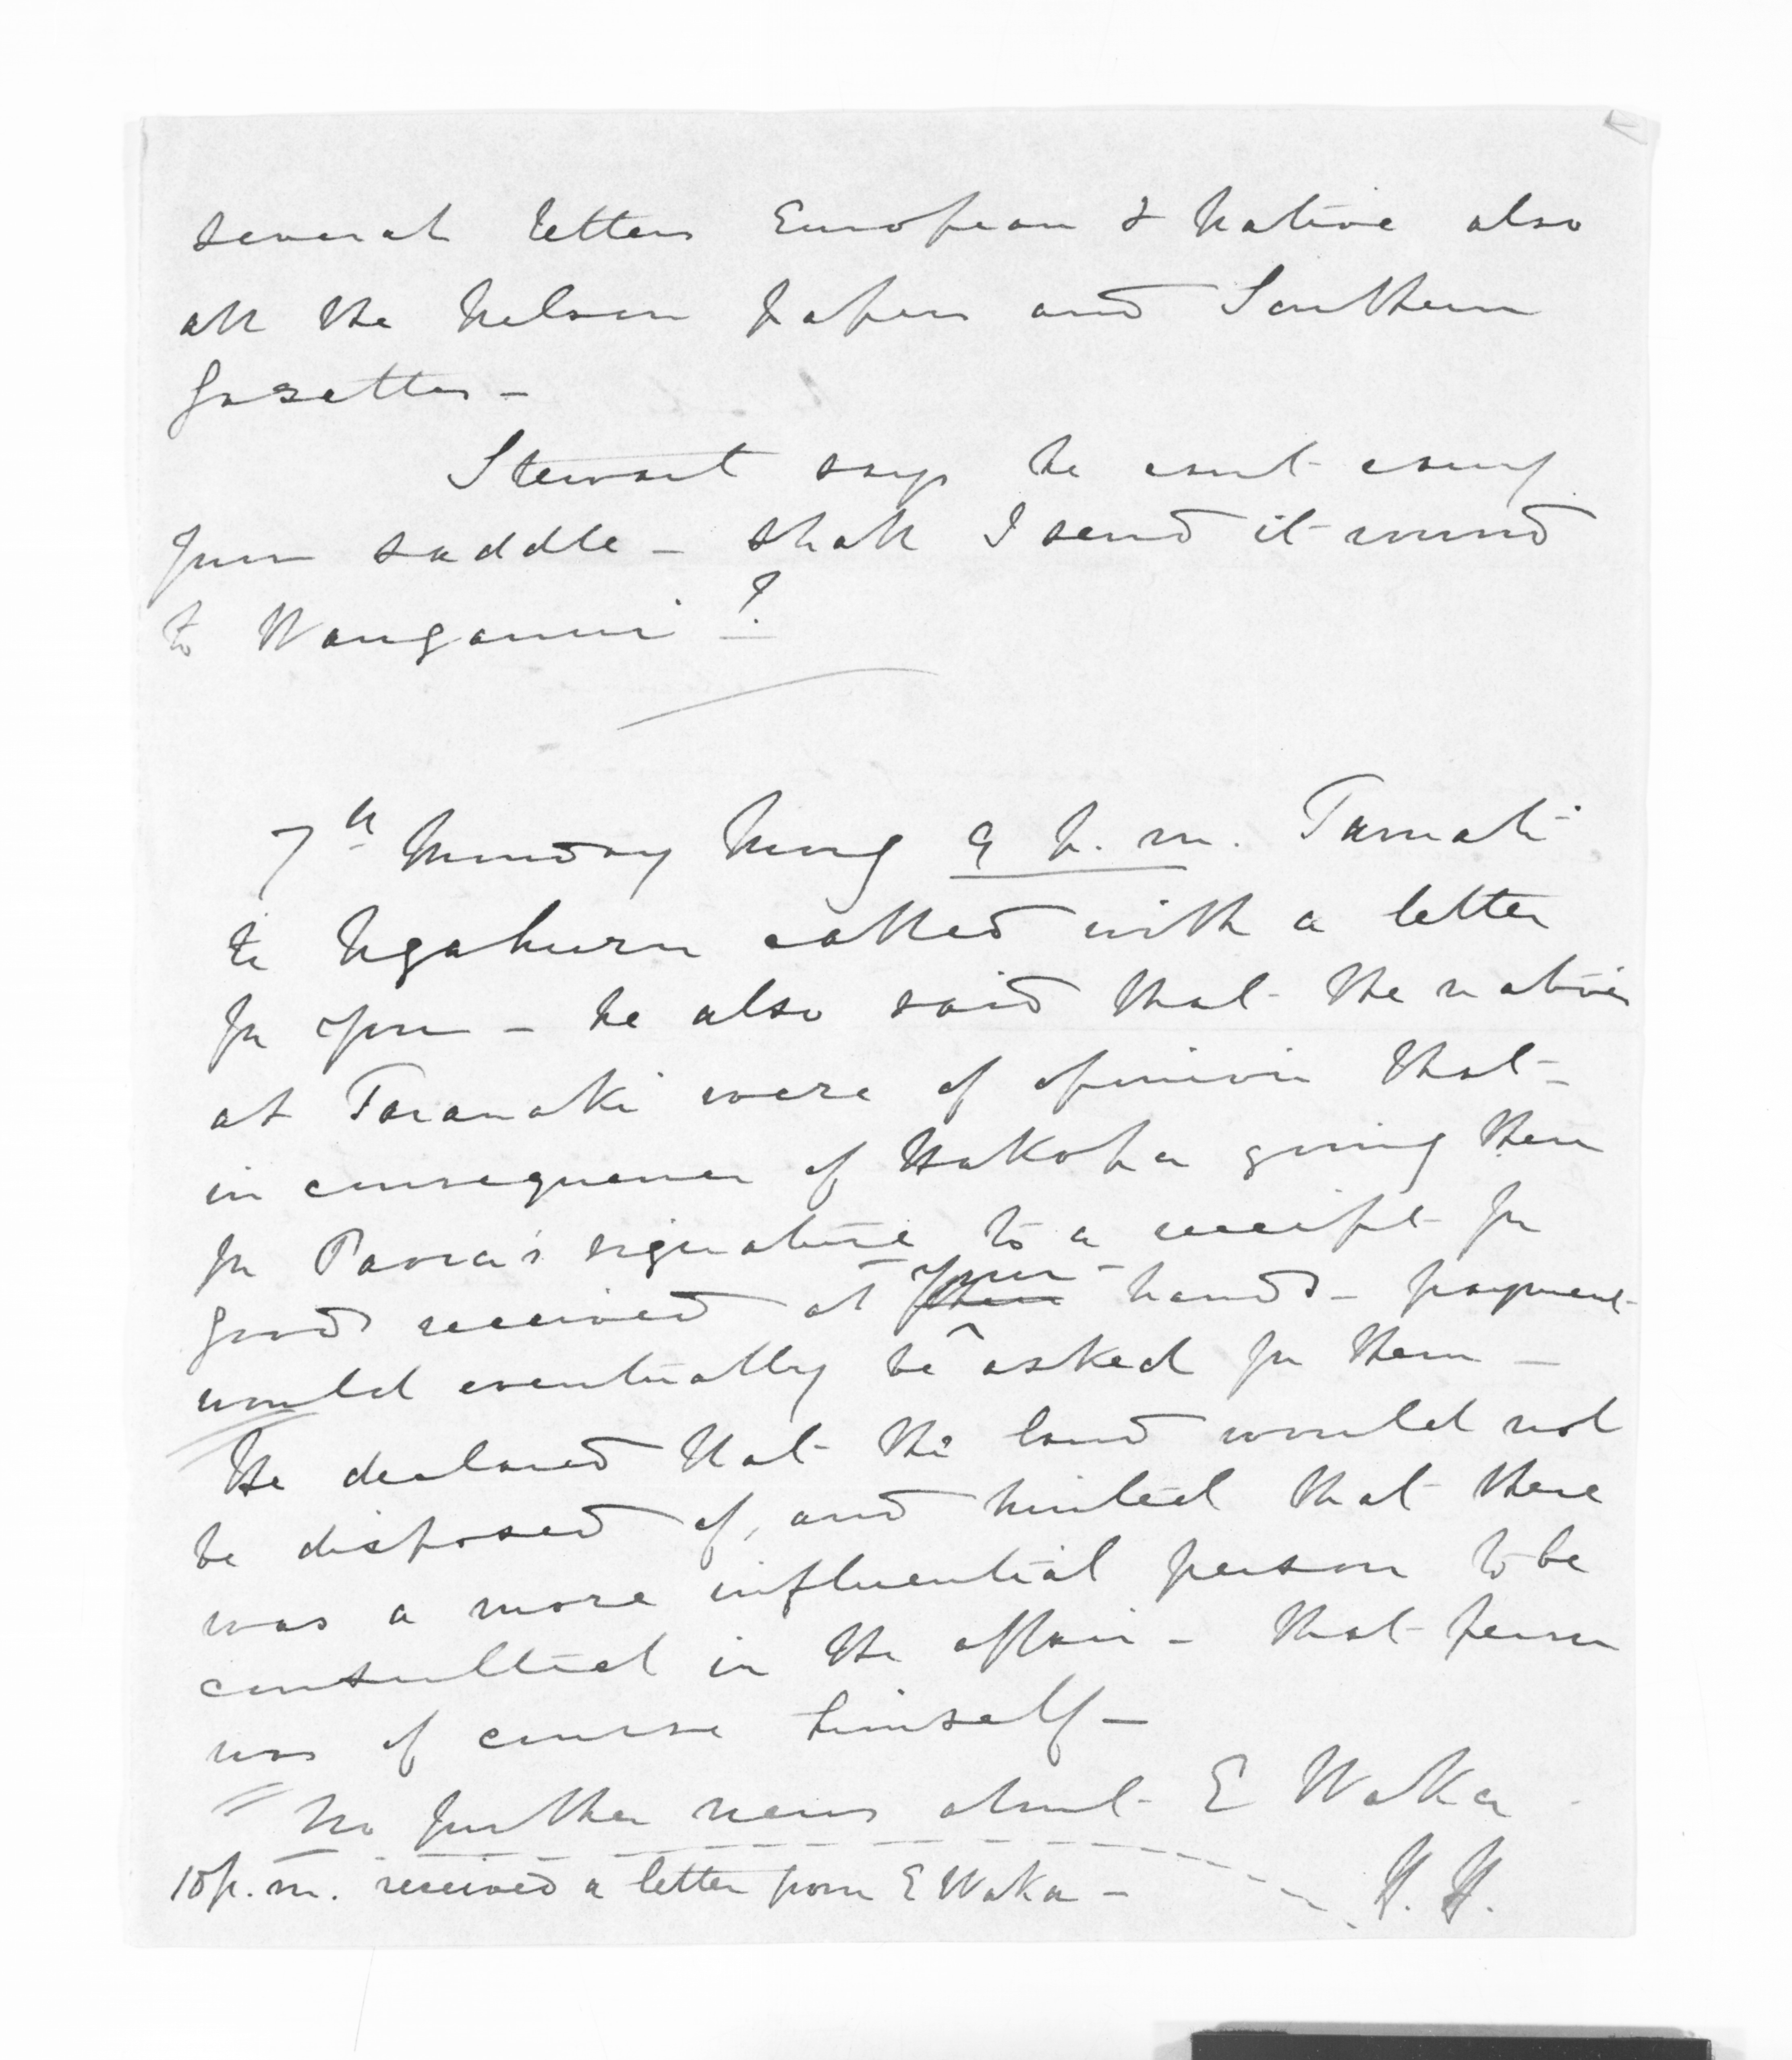 several letters European & Native also
all the Nelson Papers and Southern
Gazettes -
Stewart says he cant carry
your saddle - shall I send it round
to Wanganui ?
7th Monday Mong 9 p.m. Tamati
te Ngahuru called with a letter
for you - he also said that the natives
at Taranaki were of opinion that -
in consequence of Hakopa going there
for Paora's signature to a receipt for
goods received at your hands - payment
would eventually be asked for them -
He declared that the land would not
be disposed of, and hinted that there
was a more influential person to be
consulted in the affair - that person
was of course himself -
No further news about E Waka
10 p.m. received a letter from E Waka -
H. H.